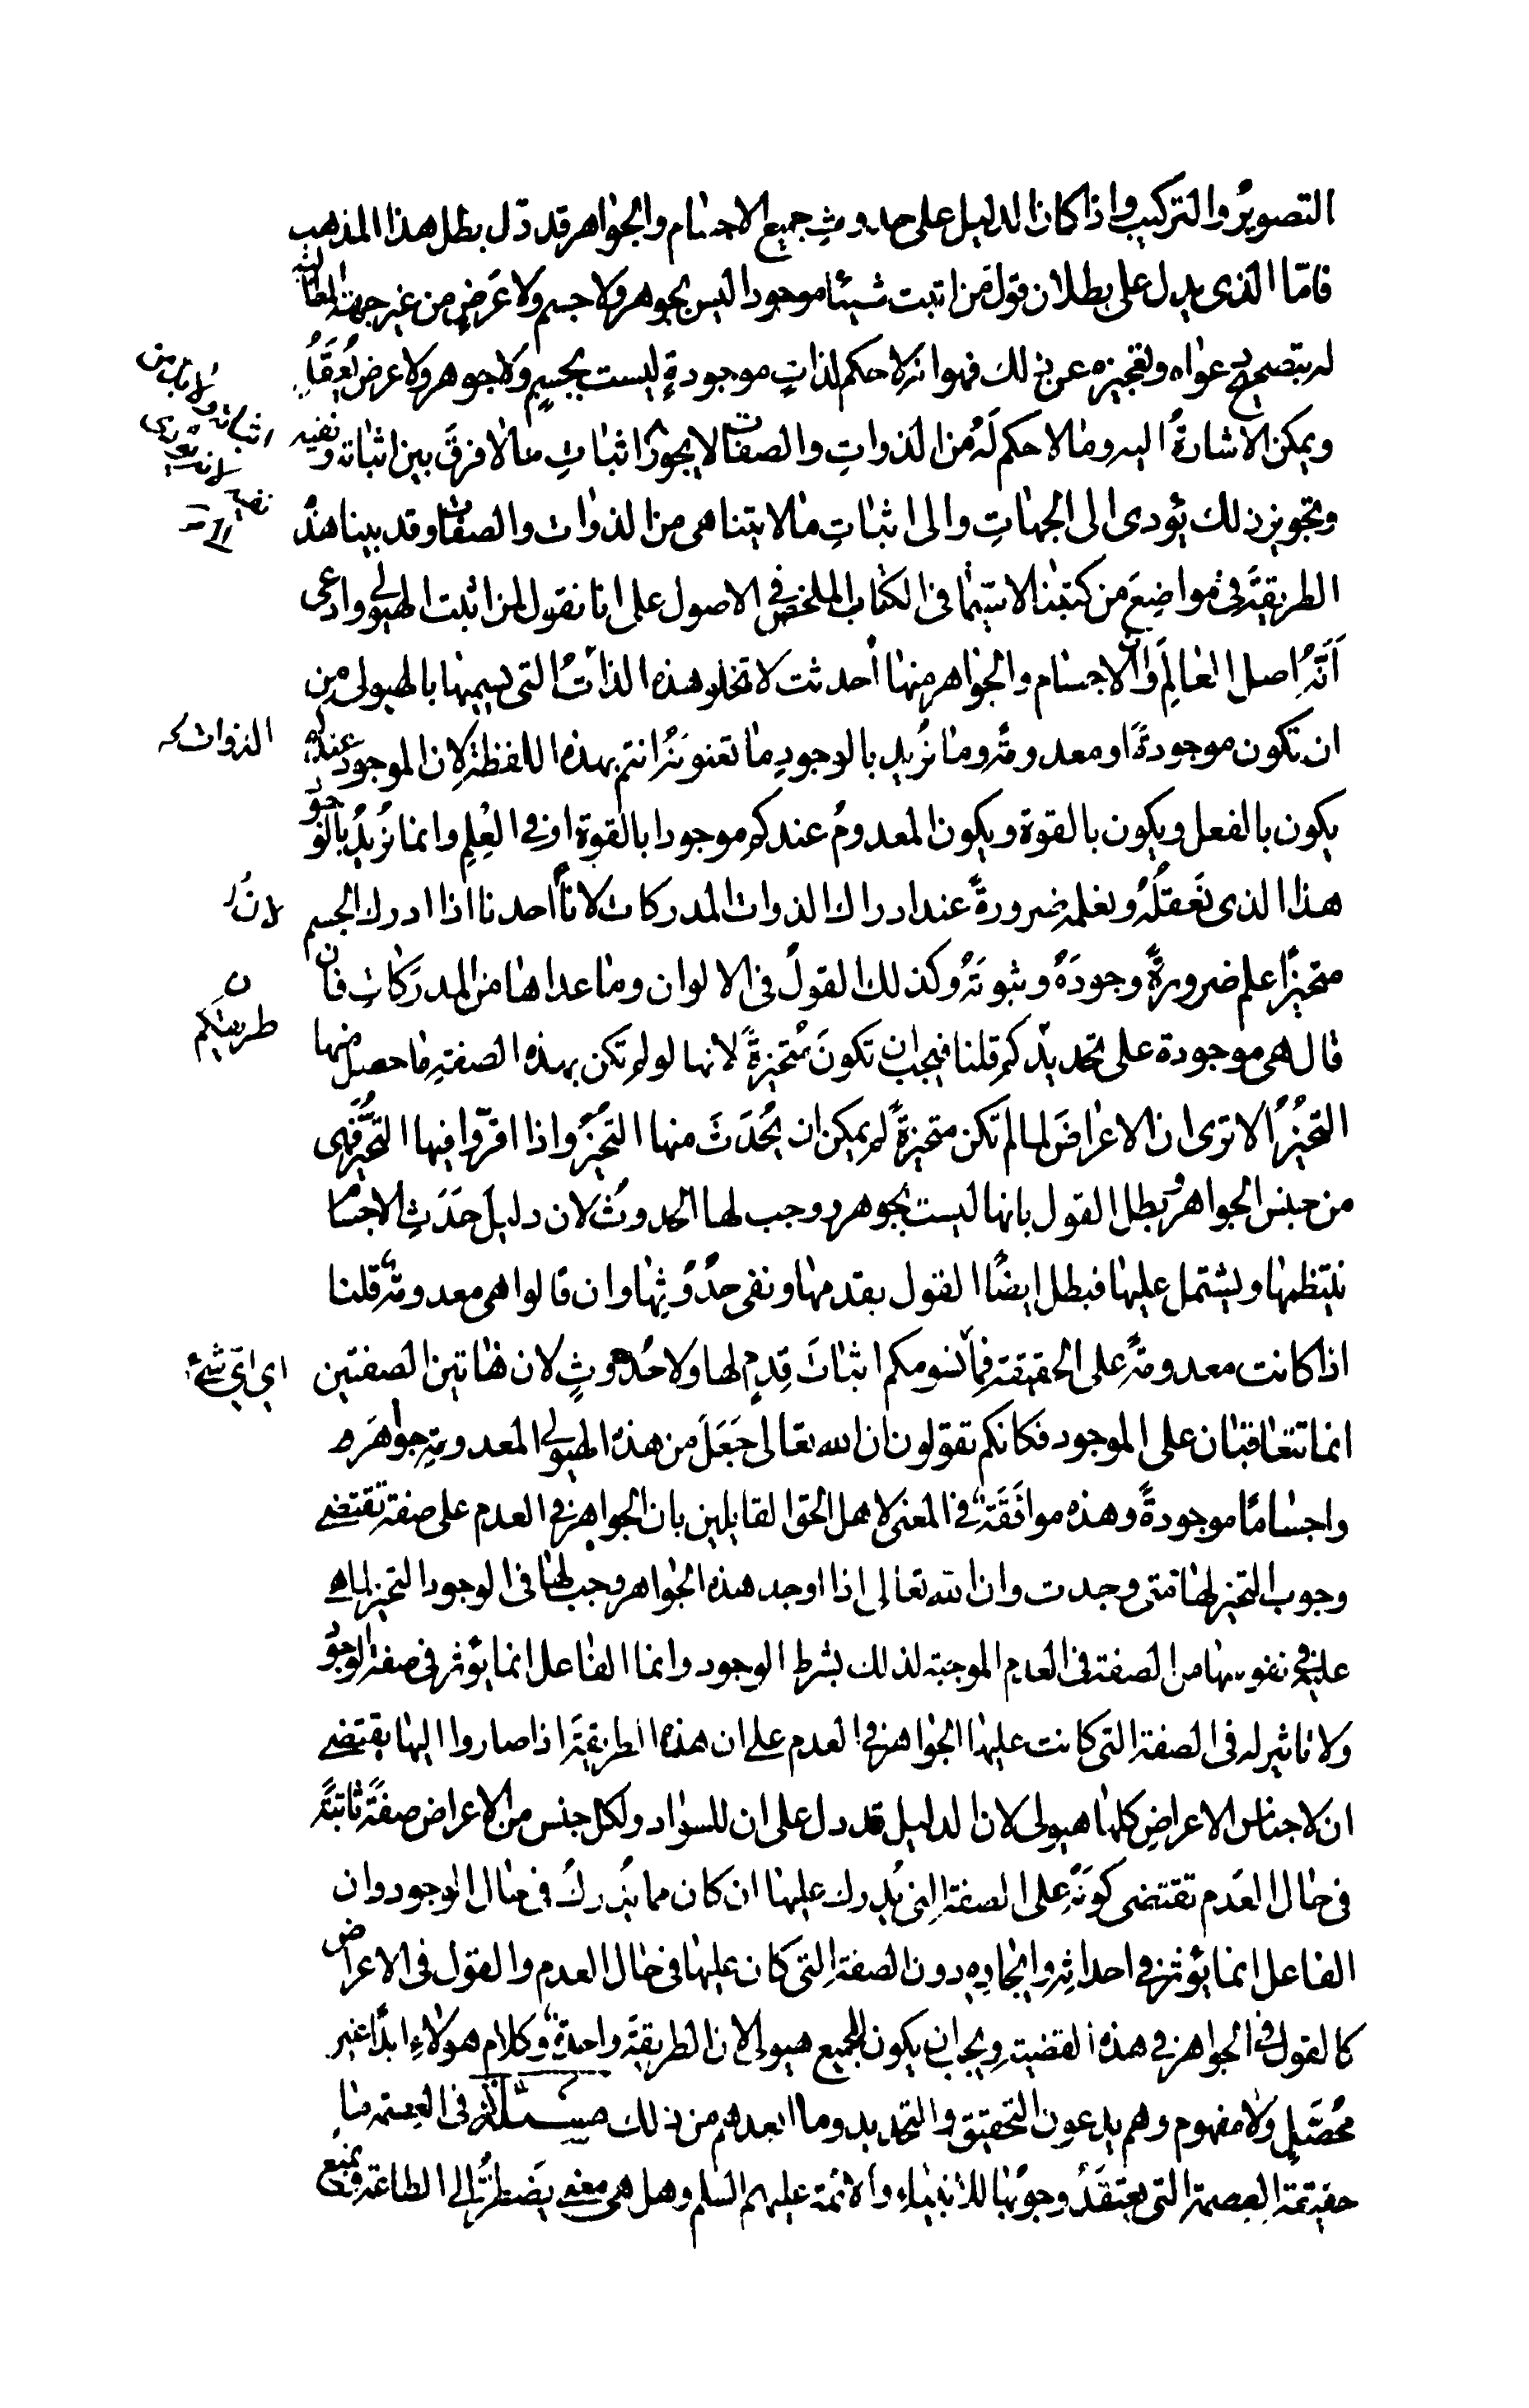 التصوير والتركيب واذا كان الدليل على حدوث جميع الاجسام والجواهر قد دل بطل هذا المذهب
فامّا الذى يدل على بطلان قول من اثبت شيئا موجودا ليس بجوهر ولا جسم ولا عَرَضٍ من غير جهة المطالبة
له بتصحيح دعواه وتعجيزه عن ذلك فهو انه لا حكم لذاتٍ موجودةٍ ليست بجسمٍ ولا جوهر ولا عرض يُعقَلُ
ويمكن الاشارةُ اليه وما لا حكم لَهُ من الذواتِ والصفات لا يجوز اثباتِ ما لا فرقَ بين اثباته ونفيه
وتجويز ذلك يؤدى الى الجهاتِ والى اثباتِ ما لا يتناهى من الذوات والصفات وقد بينا هذه
الطريقَةَ فى مواضِعَ من كتبنا لا سيّما فى الكتاب الملخص فى الاصول على انا نقول لمن اثبت الهيولى وادعى
اَنَّهُ اصل العالَمِ وان الاجسام والجواهر منها اُحدثت لا تخلو هذه الذاتُ التى يسميها بالهيولى من
ان تكون موجودةً او معدومةً وما نُريد بالوجودِ ما تعنونَهُ انتم بهذه اللفظة لان الموجود عندكم
يكون بالفعل ويكون بالقوة ويكون المعدومُ عندكم موجودا بالقوة او فى العِلمِ وانما نُريدُ بالوجود
هذا الذى نَعقلُهُ ونعلمه ضرورةً عند ادراك الذوات المدركات لانّ احدنا اذا ادرك الجسم
متحيزًا علم ضرورةً وجودَهُ وثبوتَهُ وكذلك القولُ فى الالوان وما عداها من المدرَكاتِ فان
قال هى موجودة على تحديدكم قلنا فيجب ان تكونَ مُتحيزةً لانها لو لم تكن بهذه الصفةِ ما حصل منها
التحيّزُ الا ترى ان الاعراضَ لما لم تكن متحيزةً لم يمكن ان يُحدَثَ منها التحيّزُ واذا اقرّوا فيها التحيُّزَ فهى
من جنس الجواهر وبطل القول بانها ليست بجوهر ووجب لها الحدوثُ لان دليلَ حَدَثِ الاجسام
ينتظمها ويشتمل عليها فبطل ايضًا القول بقدمها ونفى حدُوثِها وان قالوا هى معدومةٌ قلنا
اذا كانت معدومةً على الحقيقة فما نسومكم اثباتَ قِدمٍ لها ولا حُدوثٍ لان هاتين الصفتين
انما تتعاقبان على الموجود فكانكم تقولون ان الله تعالى جَعَلَ من هذه الهيولى المعدومةِ جواهرَ
واجسامًا موجودةً وهذه موافَقَةٌ فى المعنى لاهل الحق القايلين بان الجواهر فى العدم على صفة تقتضى
وجوب التحيز لها متى وجدت وان الله تعالى اذا اوجد هذه الجواهر وجب لها فى الوجود التحيز لما هى
عليه فى نفوسها من الصفة فى العدم الموجبة لذلك بشرط الوجود وانما الفاعل انما يؤثر فى صفة الوجود
ولا تاثير له فى الصفة التى كانت عليها الجواهر فى العدم على ان هذه الطريقةَ اذا صاروا اليها يقتضى
ان لاجناس الاعراضِ كلها هيولى لان الدليل قد دل على ان للسواد ولكل جنس من الاعراض صفةً ثابتةً
فى حال العَدم تقتضى كونَهُ على الصفةِ التى يُدرك عليها ان كان مما يُدرَكُ فى حال الوجود وان
الفاعل انما يؤثر فى احداثِهِ وايجادِهِ دون الصفةِ التى كان عليها فى حال العدم والقول فى الاعراض
كالقول فى الجواهر فى هذه القضيةِ ويجب ان يكون للجميع هيولى لان الطريقةَ واحدةٌ وكلام هولاءِ ابدًا غير
مُحصّلٍ ولا مفهوم وهم يدعون التحقيق والتحديد وما ابعدهم من ذلك مسئلة فى العصمة ما
حقيقة العِصمة التى يعتقَدُ وجوبُها للانبياء والائمة عليهم السلم وهل هى معنى يَضطرُّ الى الطاعة ويمنع
الذوات كه
لانّ
ن
طريقتكم
اي ايّ شئ